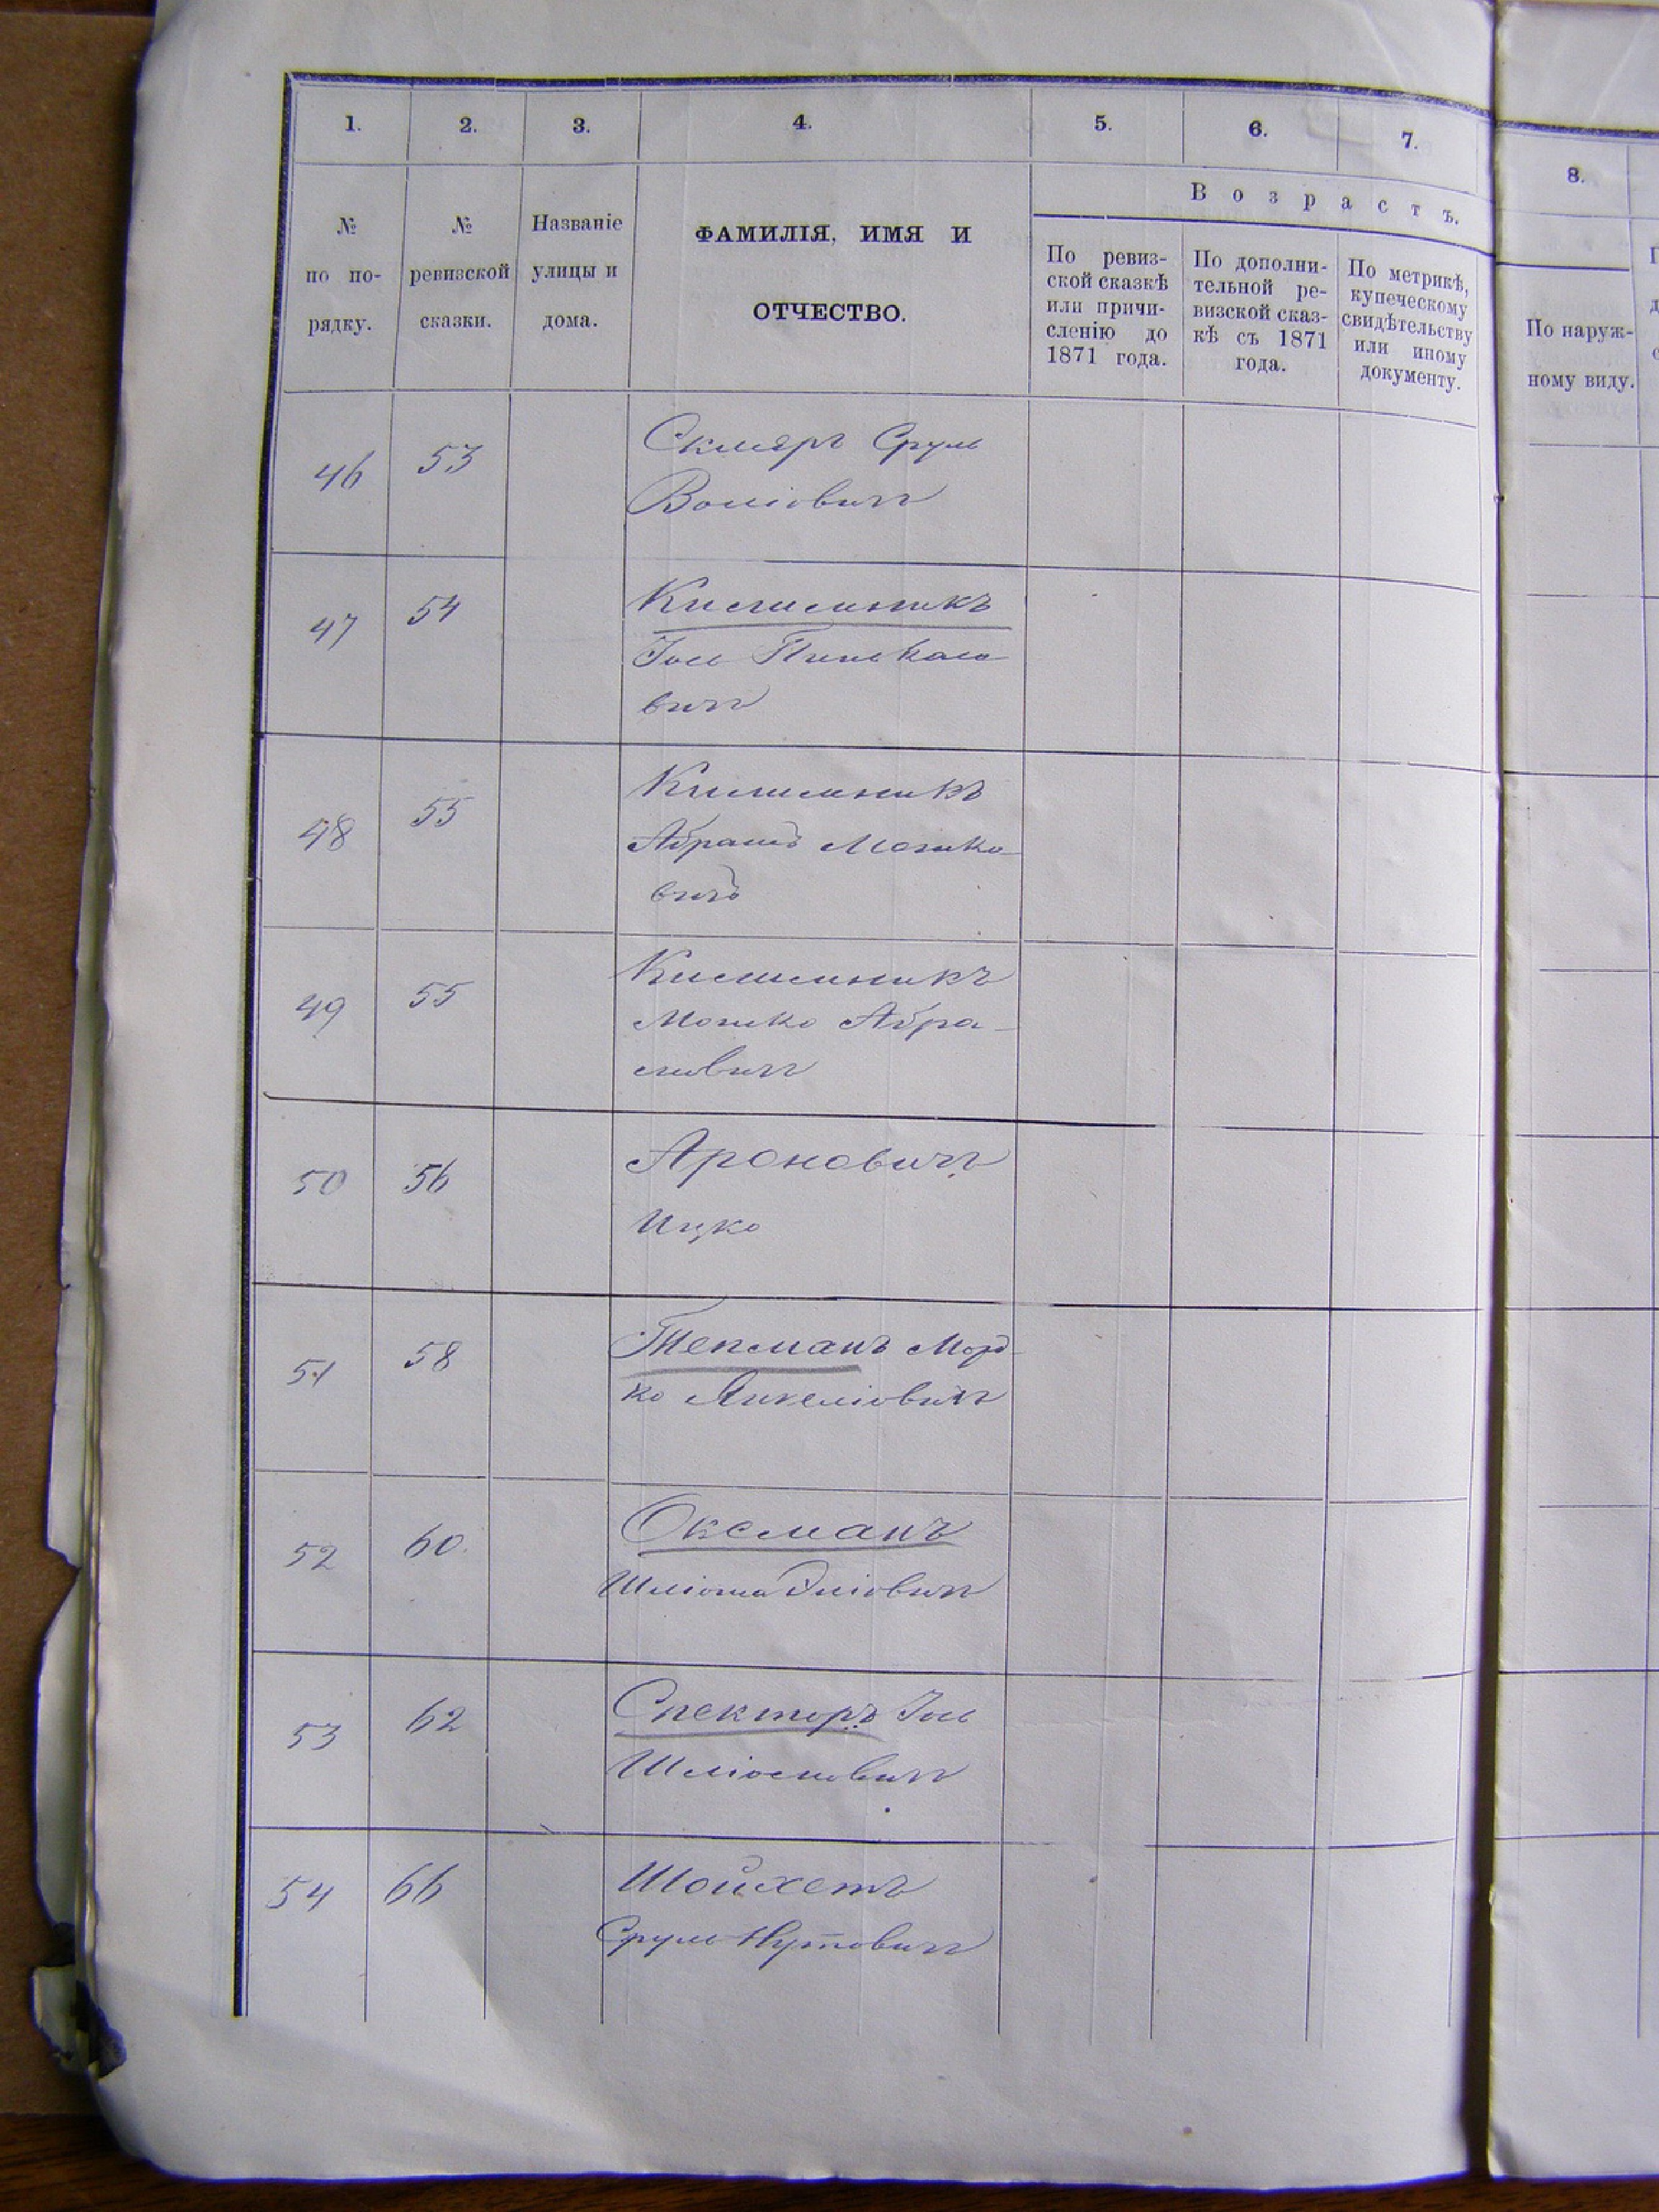 1. 2. 3. 4. 5. 6. 7. 8.
Возрастъ.
№ по по-рядку.
№ ревизской сказки.
Названіе улицы и дома.
ФАМИЛІЯ, ИМЯ И
ОТЧЕСТВО.
По ревиз-
ской сказкѣ
или причи-
сленію до
1871 года.
По дополни-
тельной ре-
визской сказ-
кѣ съ 1871
года.
По метрикѣ,
купеческому
свидѣтельству
или иному
документу.
По наруж-
ному виду.
46 53 Скляръ Сруль
Воліовичъ
47 54 Кишильникъ
Іось Пинькасо
вичъ
48 55 Кишильникъ
Абрамъ Мошко-
вичъ
49 55 Кишильникъ
Мошко Абра-
мовичъ
50 56 Ароновичъ
Ицко
51 58 Тепманъ Морд-
ко Янкеліовичъ
52 60. Оксманъ
Шліома Эліовичъ
53 62 Спекторъ Іось
Шліомовичъ
54 66 Шойхетъ
Сруль Нутовичъ